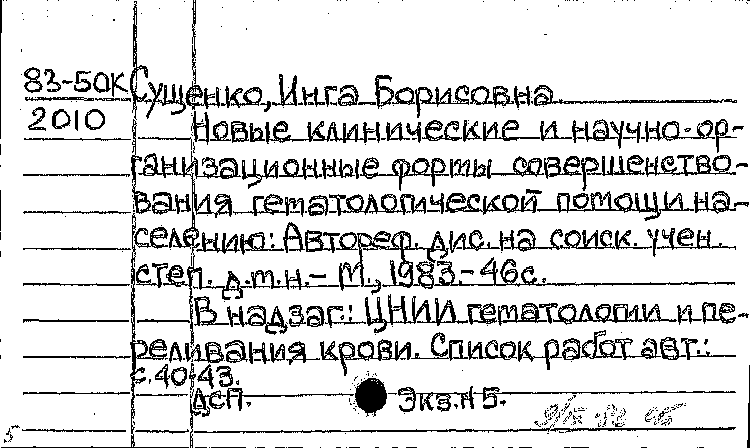 83-50К Сущенко, Инга Борисовна.
2010 Новые клинические и научно-ор-
ганизационные формы совершенство-
вания гематологической помощи на-
селению: Автореф. дис. на соиск. учен.
степ. д.м.н. – М., 1983. – 46 с.
В надзаг.: ЦНИИ гематологии и пе-
реливания крови. Список работ авт.:
с. 40-43.
ДСП. Экз. N 5.
5